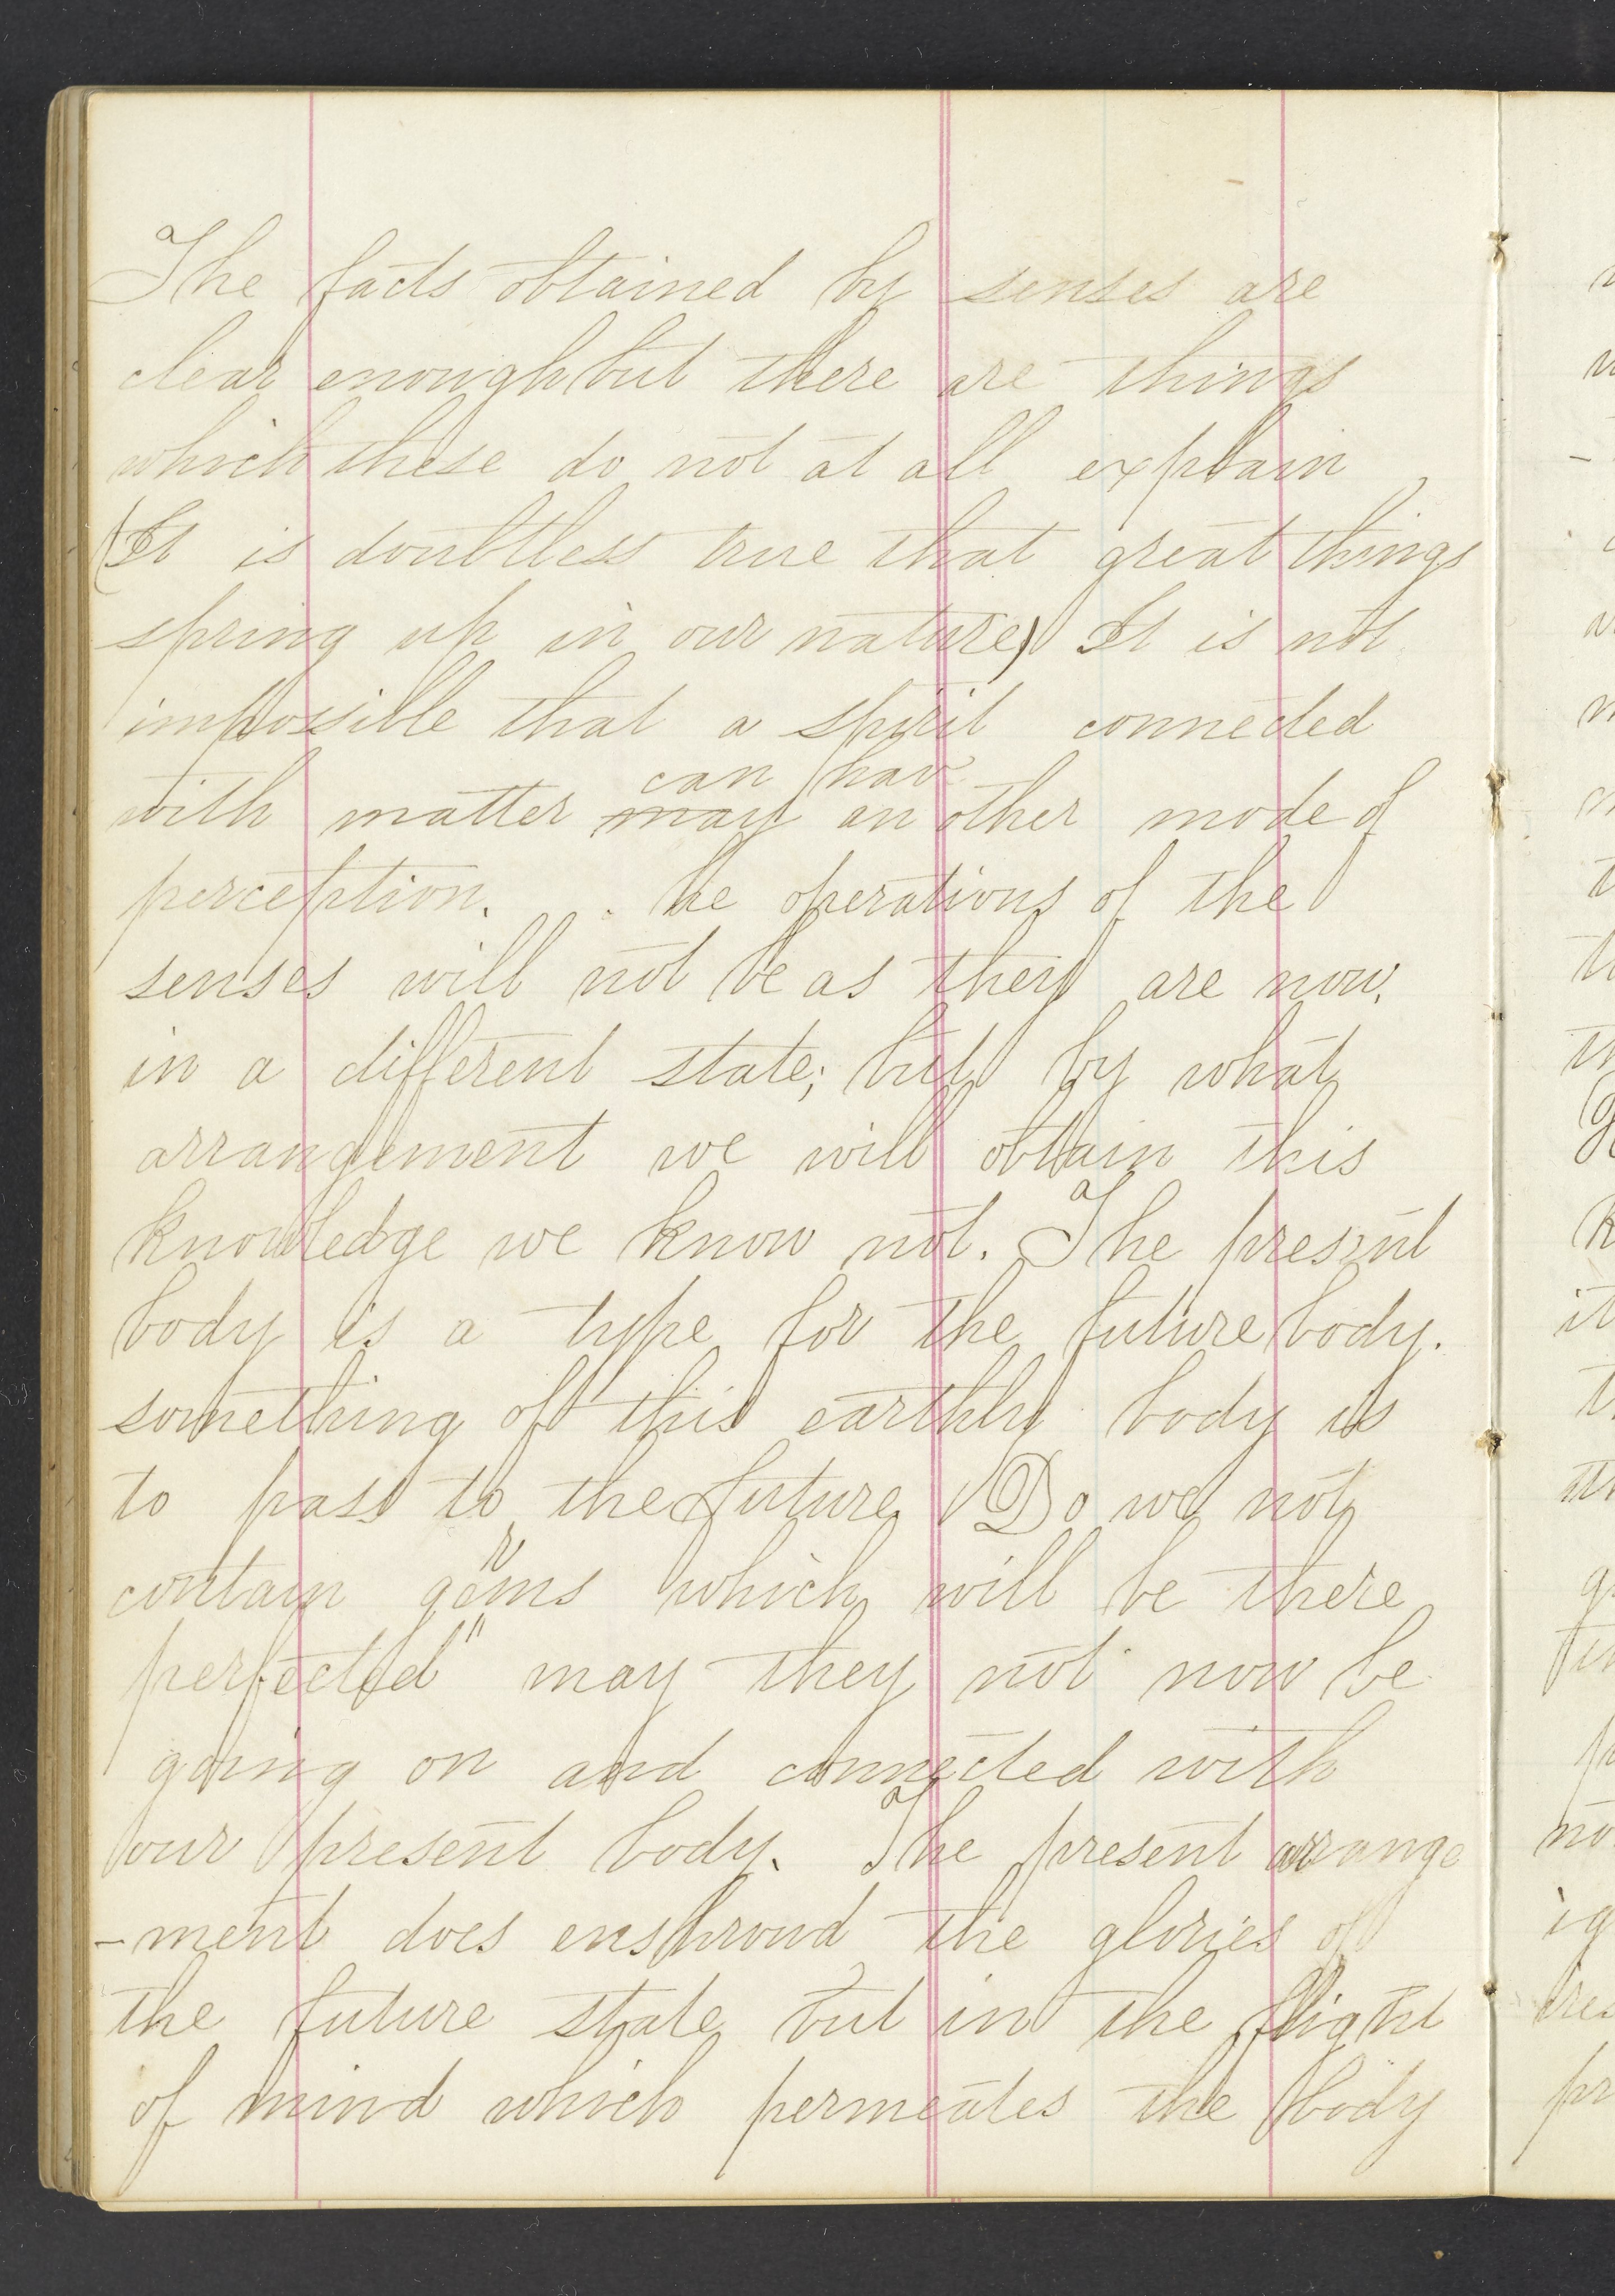 The facts obtained by senses are
clear enough but there are things
which these do not at all explain
(It is doubtless true that great things
spring up in our nature) It is not
impossible that a spirit connected
can hav
with matter may an other mode of
perception. . he operations of the
senses will not be as they are now,
in a different state; but by what
arrangement we will obtain this
knowledge we know not. The present
body is a type for the future body.
something of this earthly body is
to pass to the future Do we not
r
contain gems which will be there
perfected" may they not now be
going on and connected with
our present body. The present arrange
-ment does enshroud the glories of
the future state but in the flight
of mind which permeates the body